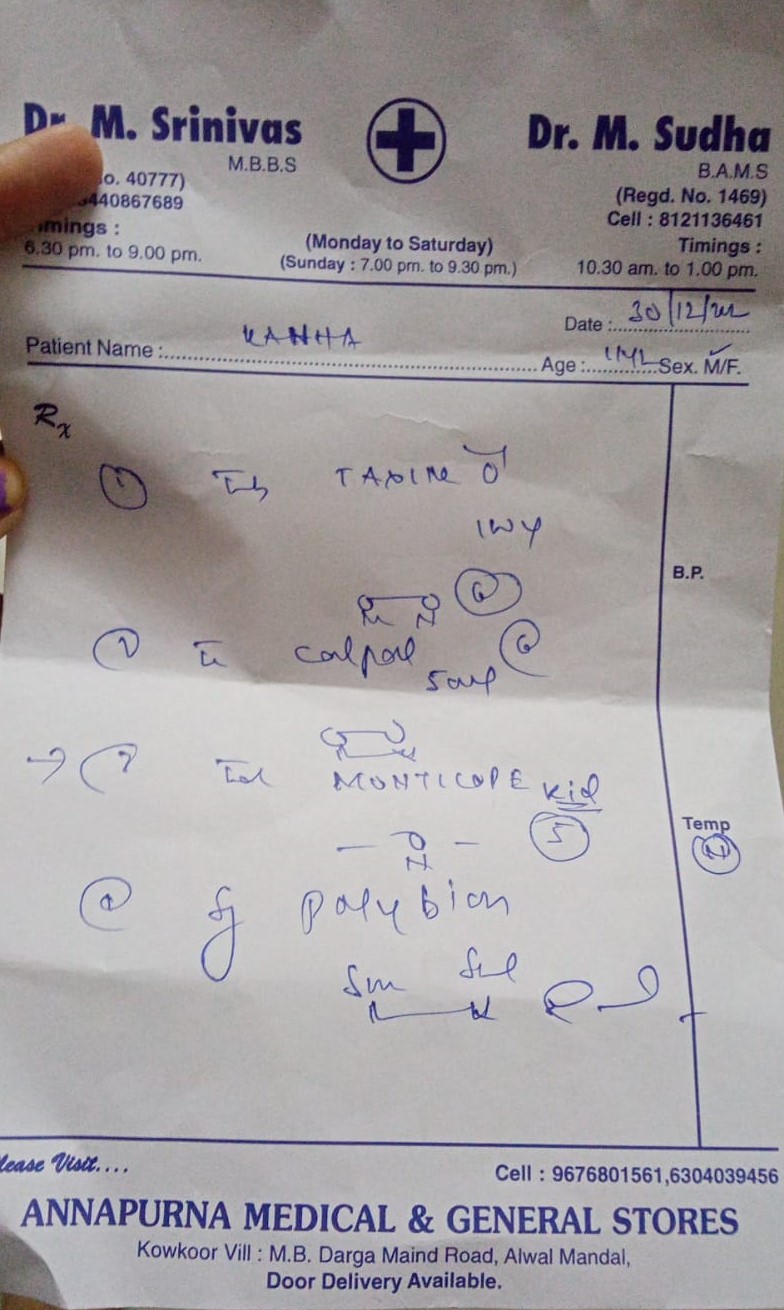 Dr. M. Srinivas
M.B.B.S
o. 40777)
440867689
mings :
6.30 pm. to 9.00 pm.
(Monday to Saturday)
(Sunday : 7.00 pm. to 9.30 pm.)
Dr. M. Sudha
B.A.M.S
(Regd. No. 1469)
Cell : 8121136461
Timings :
10.30 am. to 1.00 pm.
Date : 30/12/22
Patient Name : KANHA
Age : Sex. M/F.
Rx
① Tab TAXIM O
② calpol
6
B.P.
Tab MONTICOPE kid
5
Temp
N
④ Sy polybion
5ml 5ml
lease Visit....
Cell : 9676801561,6304039456
ANNAPURNA MEDICAL & GENERAL STORES
Kowkoor Vill : M.B. Darga Maind Road, Alwal Mandal,
Door Delivery Available.